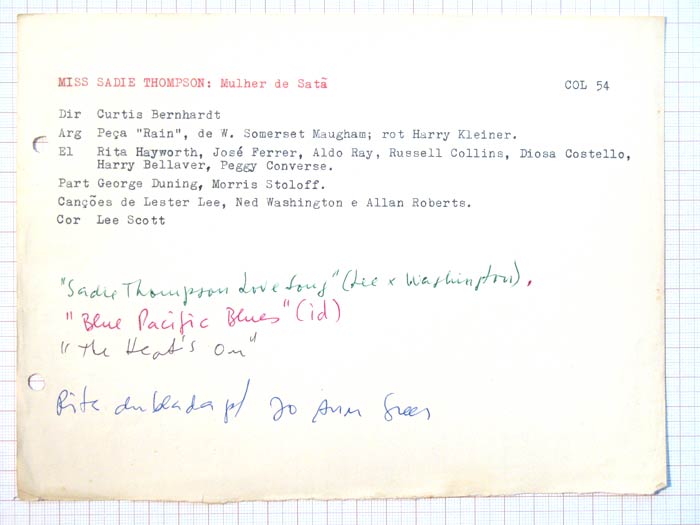 MISS SADIE THOMPSON: Mulher de Satã COL 54
Dir Curtis Bernhardt
Arg Peça "Rain", de W. Somerset Maugham; rot Harry Kleiner.
El Rita Hayworth, José Ferrer, Aldo Ray, Russell Collins, Diosa Costello,
Harry Bellaver, Peggy Converse.
Part George Duning, Morris Stoloff.
Canções de Lester Lee, Ned Washington e Allan Roberts.
Cor Lee Scott
"Sadie Thompson Love Song" (Lee x Washington),
"Blue Pacific Blues" (id)
"The Heat's On"
Rita dublada p/ Jo Ann Greer